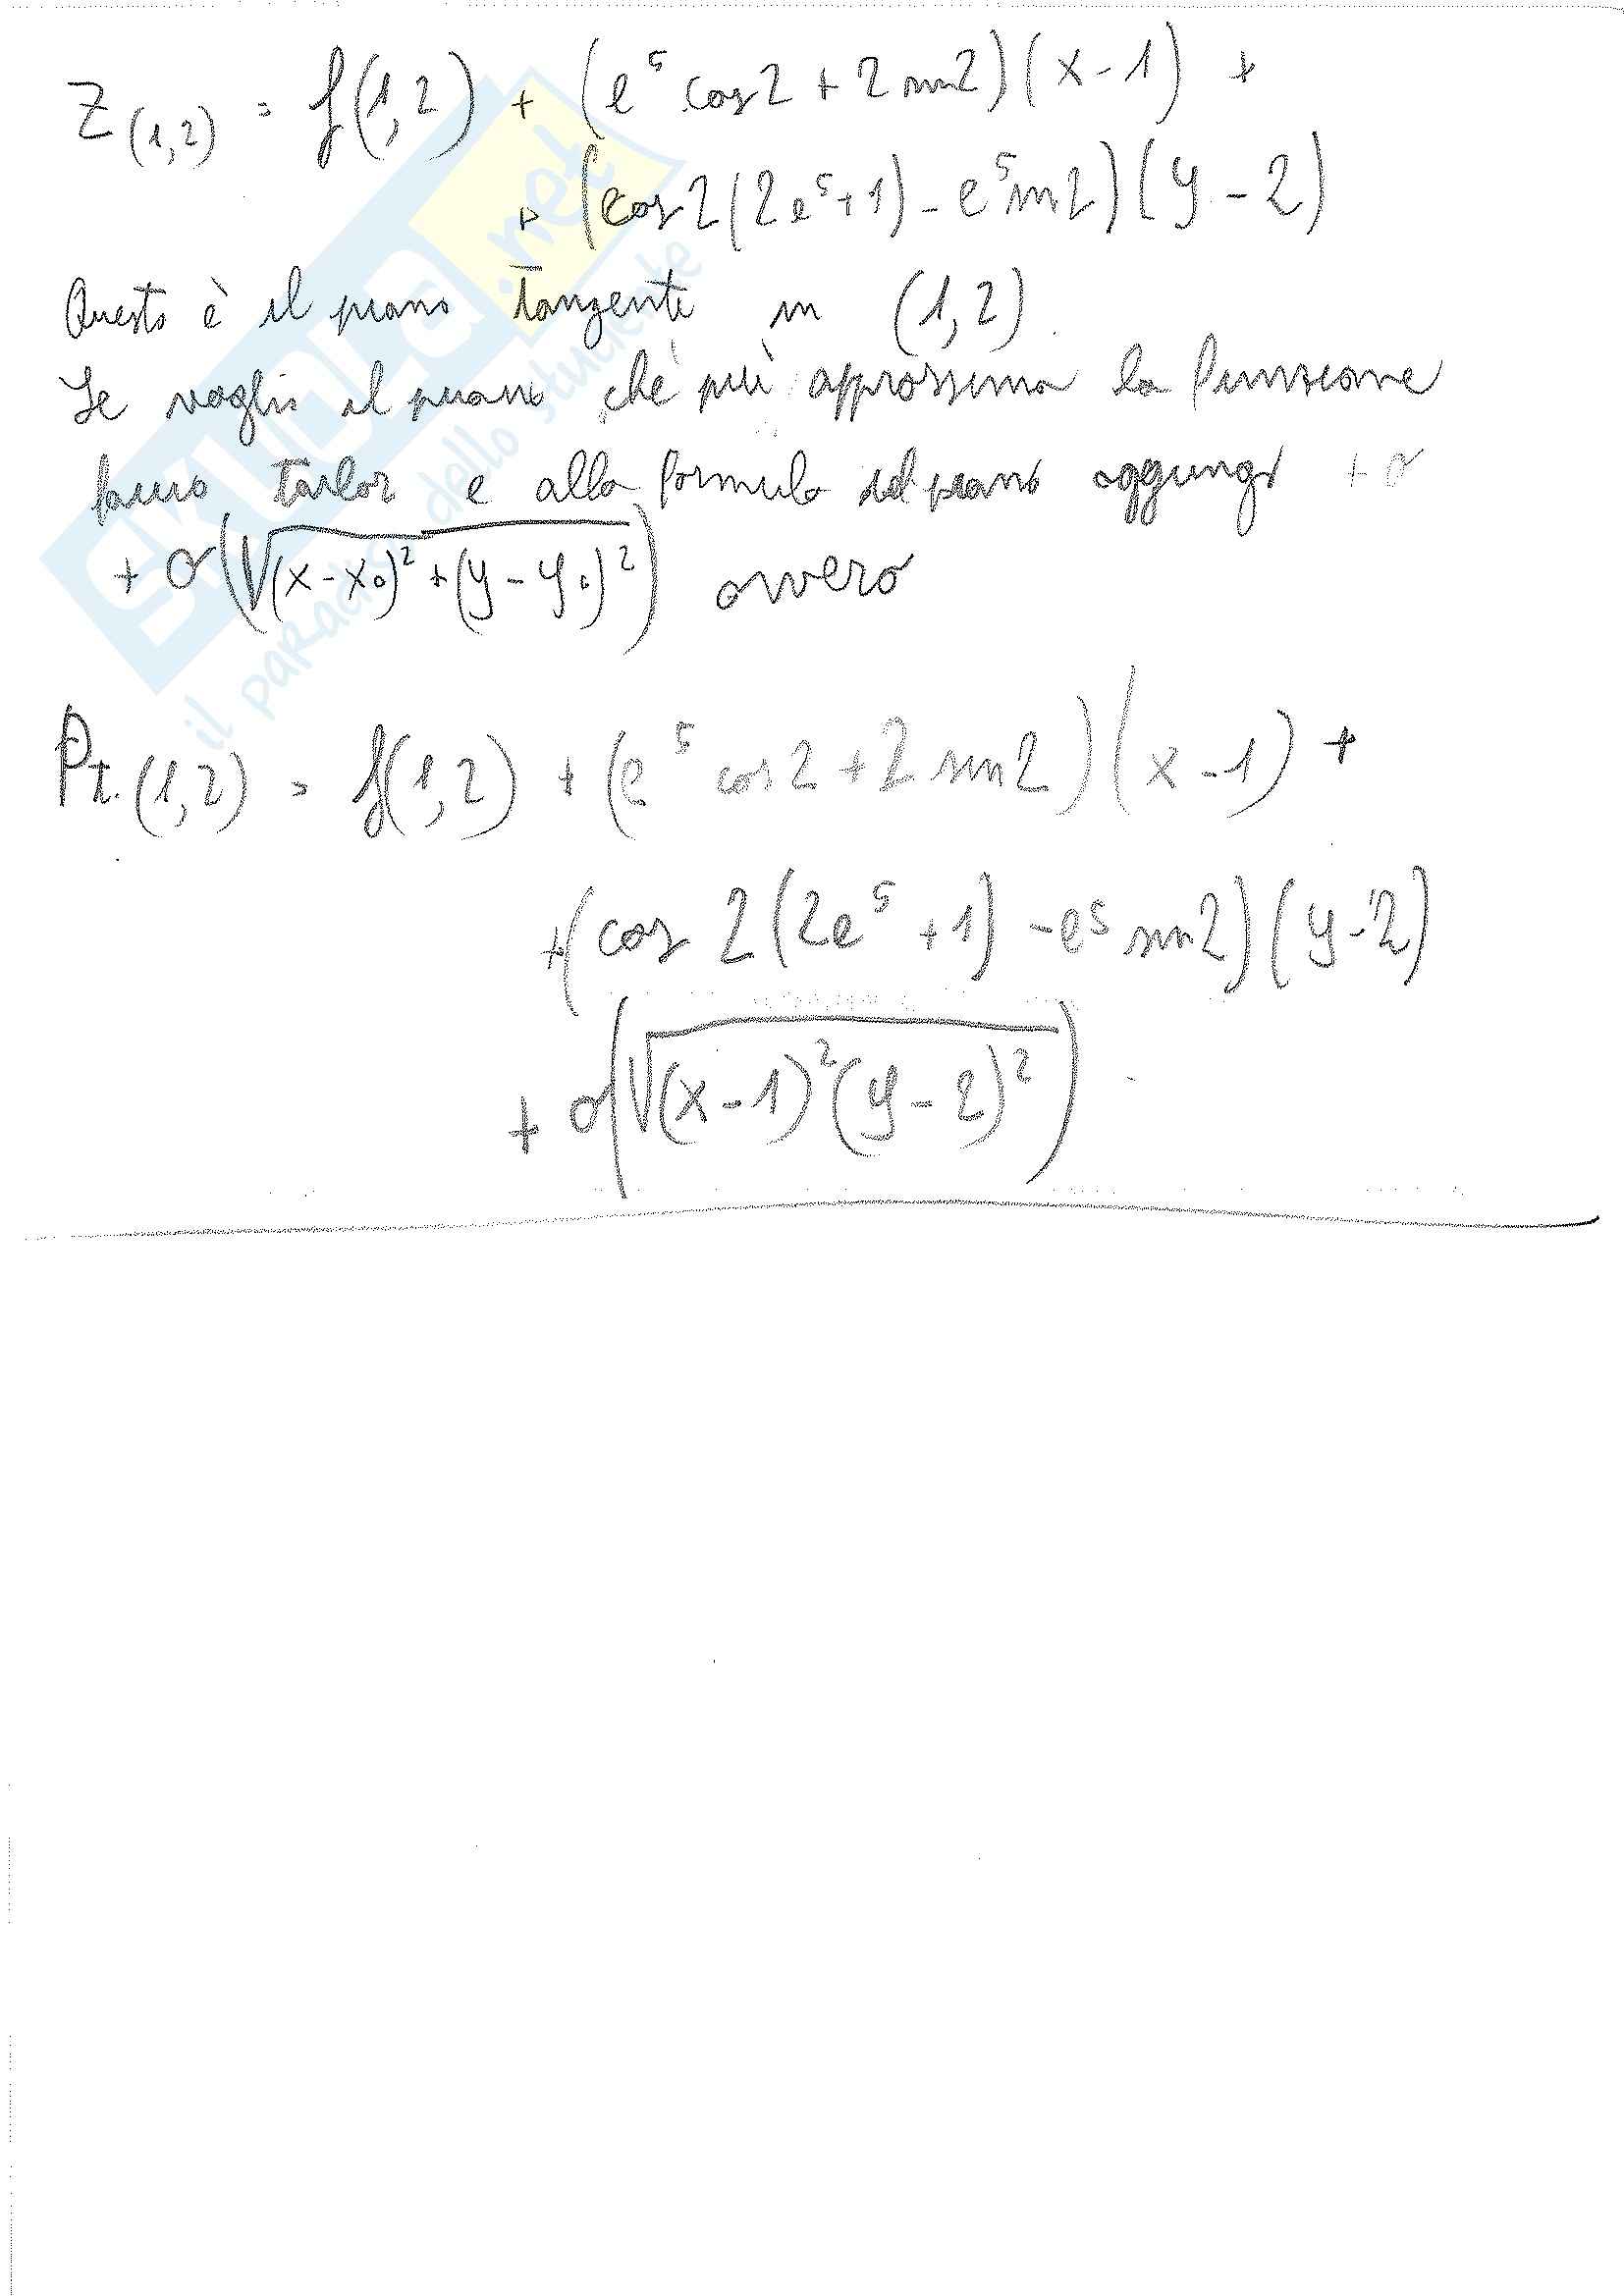 Z(1,2) = f(1,2) + (e⁵ cos2 + 2 sin2)(x-1) +
+ (cos2(2e⁵+1) - e⁵ sin2)(y-2)
Questo è il piano tangente in (1,2).
Se voglio il piano che più approssima la funzione
faccio Tailor e alla formula del piano aggiungo + o
+ o(√((x-x₀)²+(y-y₀)²)) ovvero
Pt.(1,2) = f(1,2) + (e⁵ cos2 + 2 sin2)(x-1) +
+(cos 2(2e⁵+1) - e⁵ sin2)(y-2)
+ o(√((x-1)²(y-2)²))
SKUOLA.net
il paradiso dello studente